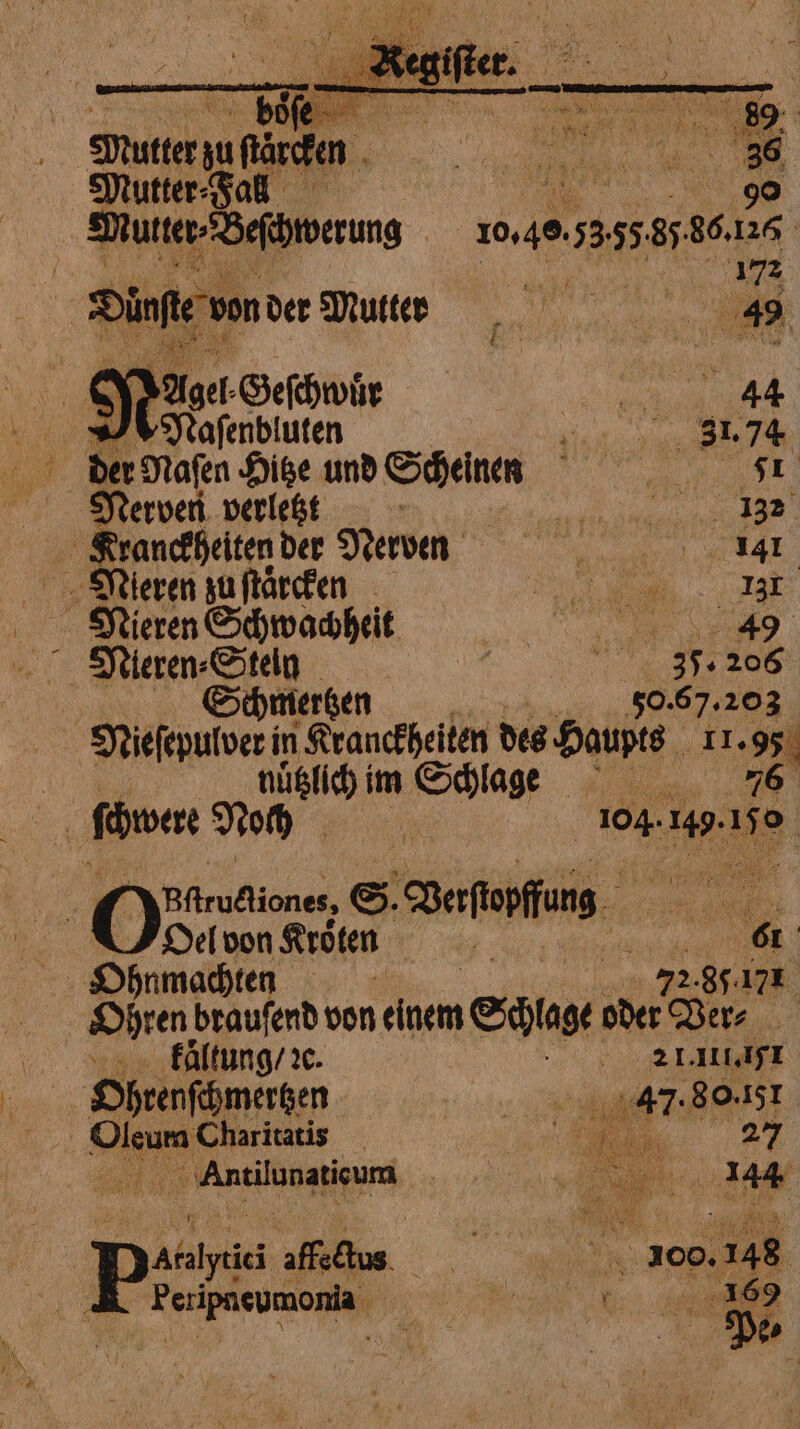 Regiſter.
boͤſe 89.
Mutter zu ſtaͤrcken 36
Mutter-Fall 90
Mutter-Beſchwerung 10,40.53.55.85.86.126
172
Duͤnſte von der Mutter 49
NAgel-Geſchwuͤr 44
Naſenbluten 31.74
der Naſen Hitze und Scheinen 51
Nerven verletzt 132
Kranckheiten der Nerven 141
Nieren zu ſtaͤrcken 131
Nieren Schwachheit 49
Nieren-Stein 35. 206
Schmertzen 50.67.203
Nieſepulver in Kranckheiten des Haupts 11.95
nuͤtzlich im Schlage 76
ſchwere Noth 104.149.150
OBſtructiones, S. Verſtopffung
Oel von Kroͤten 61
Ohnmachten 72.85.171
Ohren brauſend von einem Schlage oder Ver-
kaͤltung/ ꝛc. 21.111.151
Ohrenſchmertzen 47.80.151
Oleum Charitatis 27
Antilunaticum 144
PAralytici affectus 100.148
Peripneumonia 169
Pe-